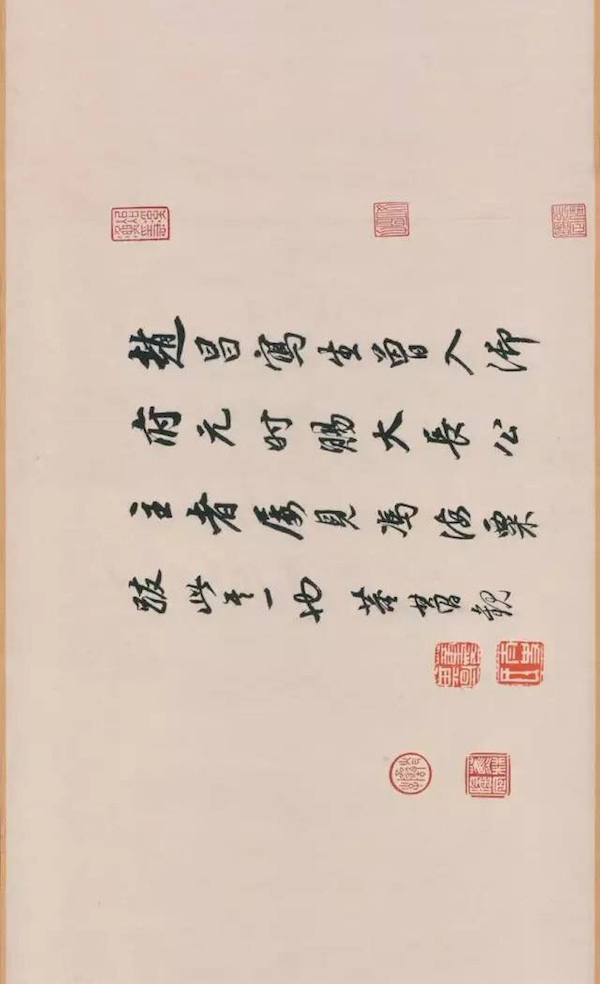 趙昌寫生曾入御
府元時賜大長公
主者屢見馮海粟
跋此其一也 董其昌觀